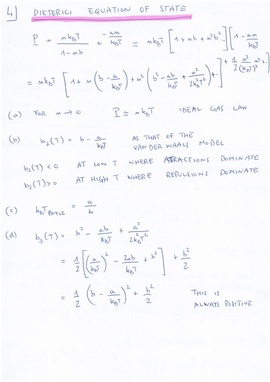 4) DIETERICI EQUATION OF STATE
P = nk_BT / (1-nb) e^(-an/k_BT) ≃ nk_BT [1+nb+n²b²][1 - an/k_BT + 1/2 a²/(k_BT)² n² ...]
= nk_BT [1 + n (b - a/k_BT) + n² (b² - ab/k_BT + a²/2k_B²T²) + ...]
(a) FOR n → 0 P ≃ nk_BT IDEAL GAS LAW
(b) b₂(T) = b - a/k_BT AS THAT OF THE
VAN DER WAALS MODEL
b₂(T) < 0 AT LOW T WHERE ATTRACTIONS DOMINATE
b₂(T) > 0 AT HIGH T WHERE REPULSIONS DOMINATE
(c) k_BT_BOYLE = a/b
(d) b₃(T) = b² - ab/k_BT + a²/2k_B²T²
= 1/2 [(a/k_BT)² - 2ab/k_BT + b²] + b²/2
= 1/2 (b - a/k_BT)² + b²/2 THIS IS
ALWAYS POSITIVE